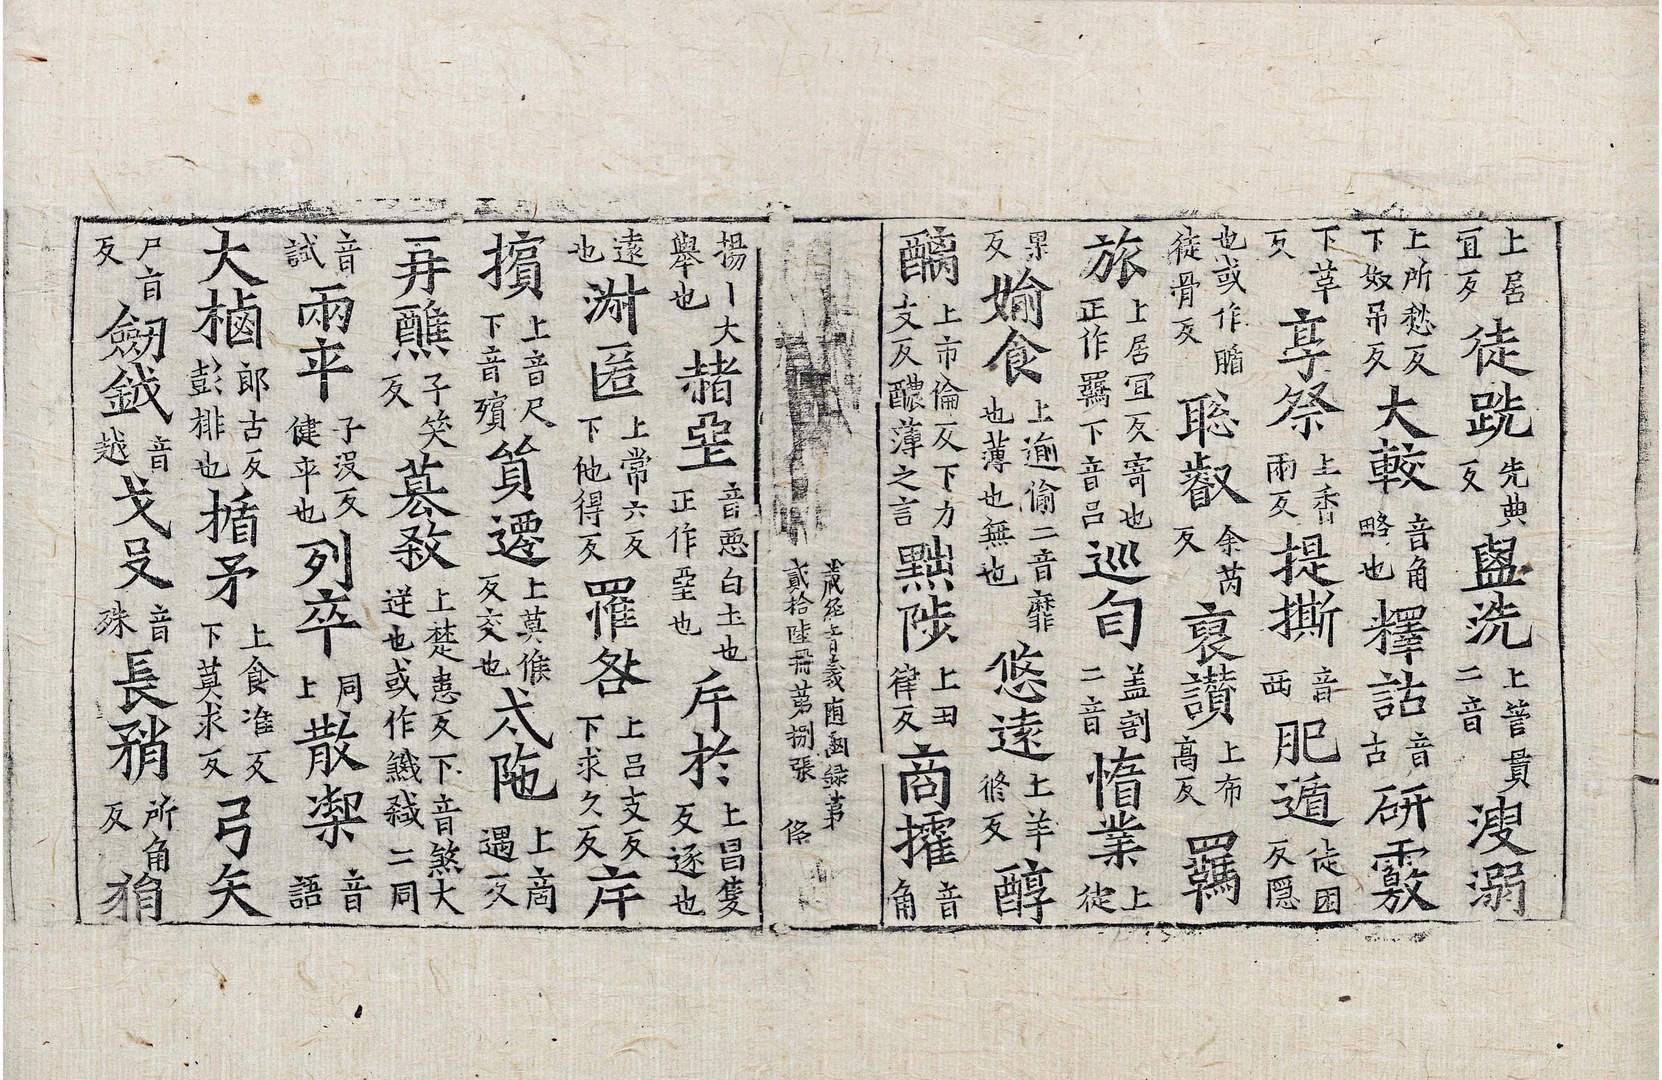 上居宜反徒跣先典反盥洗上管貫二音溲溺
上所愁反下奴吊反大較音角略也釋詁音古研覈
下革反享祭上香兩反提撕音西肥遁徒困反隱
也或作膪徒骨反聡叡余芮反裒讃上布高反羇
旅上居冝反寄也正作羈下音吕巡匄盖割二音惰業上徒
果反婾食上逾偷二音靡也薄也無也悠遠上羊修反醇
醨上市倫反下力支反醲薄之言黜陟上丑律反商搉音角
藏經音義随函録苐
貳拾陸冊苐捌張 俗
揚丨大舉也赭堊音惡白土也正作堊也斥於上昌隻反逐也
遠也淑匿上常六反下他得反罹咎上吕支反下求久反斥
擯上音尺下音殯貿遷上莫侯反交也弍陁上商遇反
弄醮子笑反慕殺上楚患反下音煞大逆也或作鐵弑二同
音試兩卒子没反健卒也列卒同上散禊音語
大樐郎古反彭排也楯矛上食准反下莫求反弓矢
尸盲反劒鉞音越戈殳音殊長矟所角反䂎